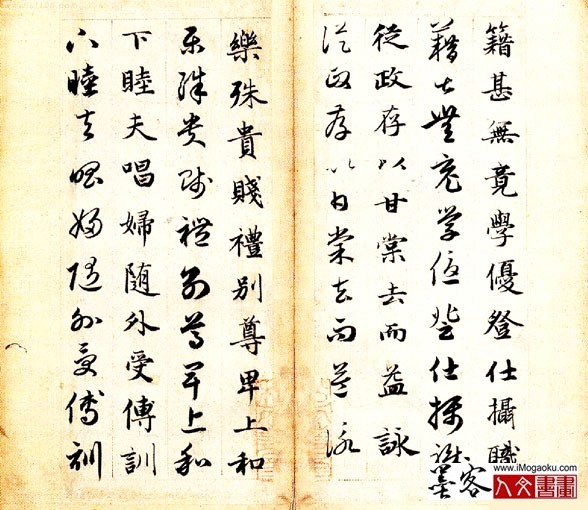 籍甚無竟學優登仕攝職
籍甚無竟学優登仕攝職
從政存以甘棠去而益詠
從政存以甘棠去而益詠
樂殊貴賤禮別尊卑上和
樂殊貴賤禮別尊卑上和
下睦夫唱婦随外受傅訓
下睦夫唱婦随外受傅訓
墨客
www.iMogaoku.com
人文書畫